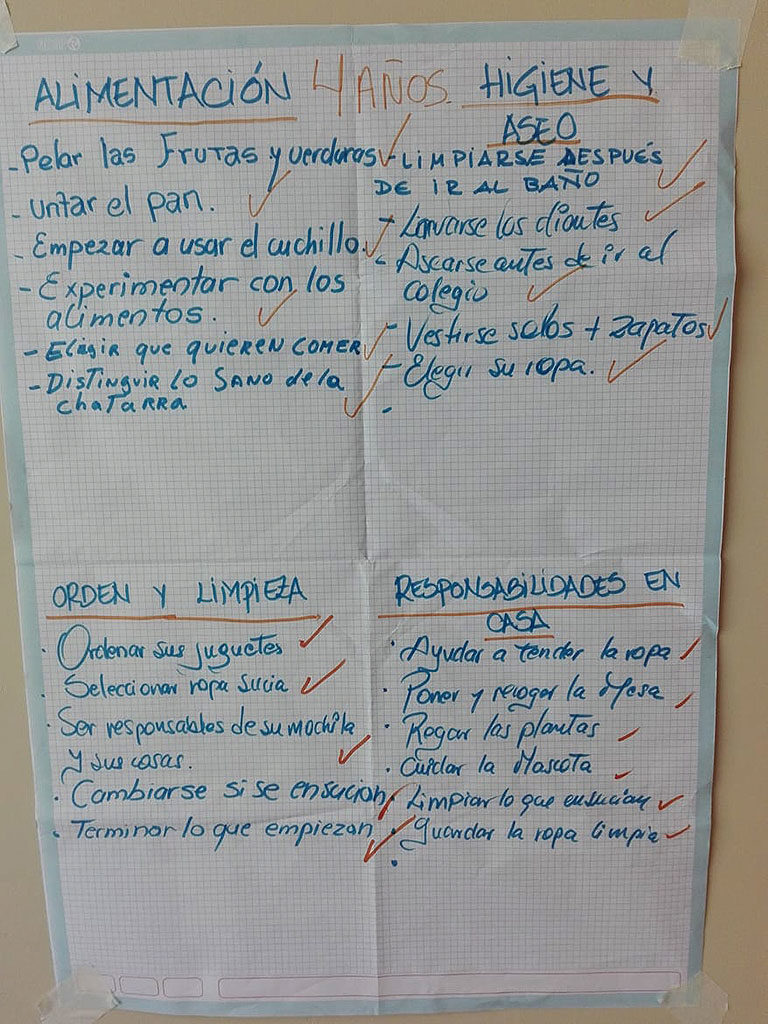 4 AÑOS.
ALIMENTACIÓN
- Pelar las Frutas y verduras
- untar el pan.
- Empezar a usar el cuchillo.
- Experimentar con los
alimentos.
- ELEGIR QUE QUIEREN COMER
- DISTINGUIR LO SANO de la
ChaTARRA
HIGIENE Y
ASEO
- LIMPIARSE DESPUÉS
DE IR AL BAÑO
- Lavarse los dientes
- Asearse antes de ir al
colegio
- Vestirse solos + zapatos
- Elegir su ropa.
-
ORDEN Y LIMPIEZA
· Ordenar sus juguetes
· Seleccionar ropa sucia
· Ser responsables de su mochila
y sus cosas.
· Cambiarse si se ensucian
· Terminar lo que empiezan
RESPONSABILIDADES EN
CASA
· Ayudar a tender la ropa
· Poner y recoger la Mesa
· Regar las plantas
· Cuidar la Mascota
· Limpiar lo que ensucian
· Guardar la ropa limpia
·